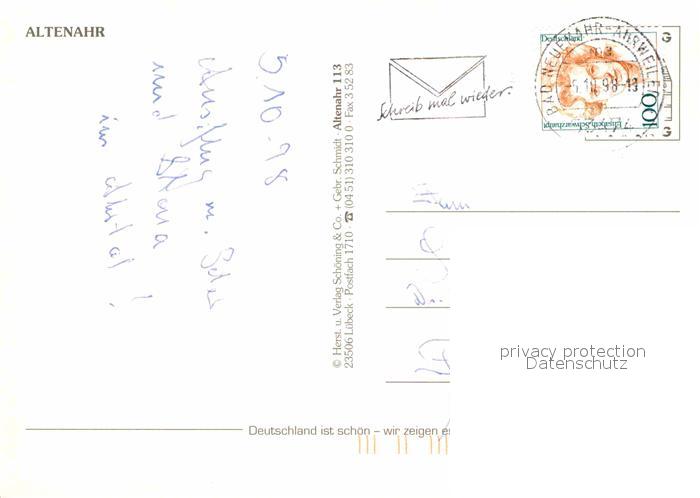 ALTENAHR
5.10.98
Ausflug m. Peter
und
im Ahrtal!
© Herst. u. Verlag Schöning & Co. + Gebr. Schmidt · Altenahr 113
23506 Lübeck · Postfach 1710 · ☎ (04 51) 310 310 0 · Fax 3 52 83
Schreib mal wieder.
Deutschland
100
Elisabeth Schwarzhaupt
BAD NEUENAHR-AHRWEILER
98-13
G
G
privacy protection
Datenschutz
Deutschland ist schön – wir zeigen es